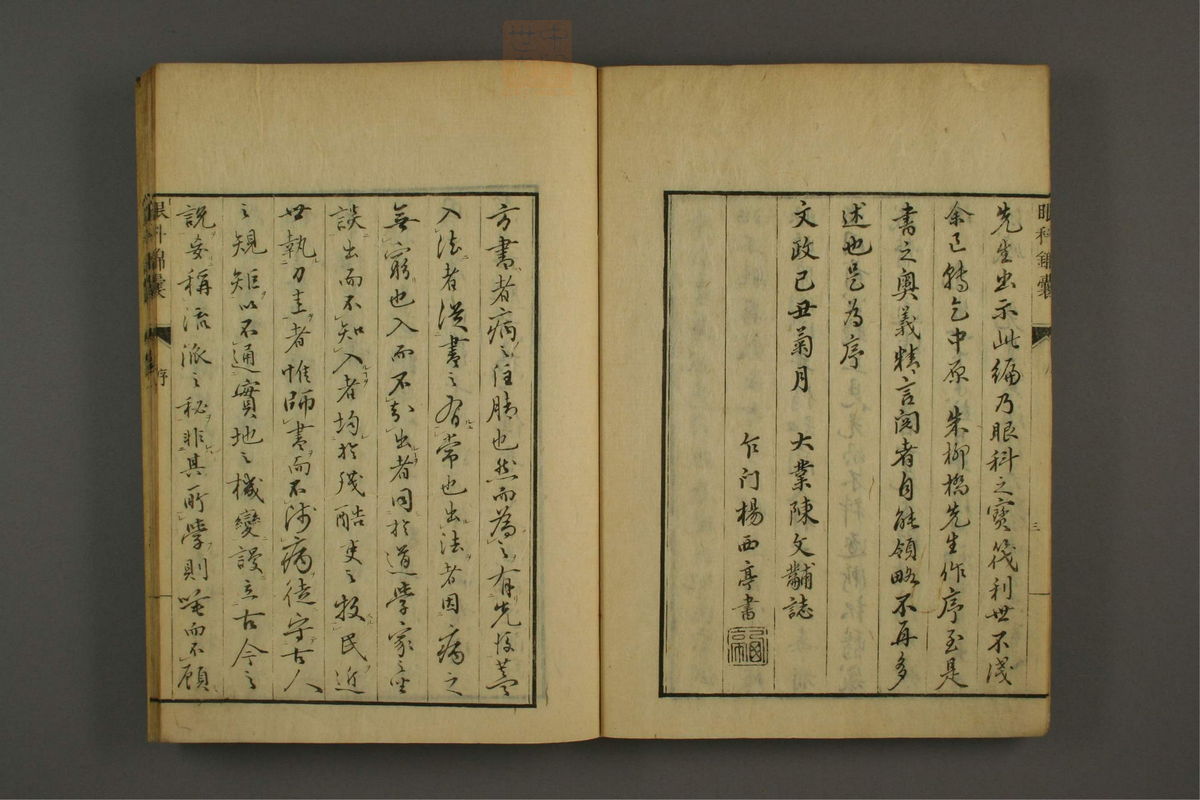 先生出示此編乃眼科之寶筏利世不淺
余已轉乞中原朱柳橋先生作序至是
書之奧義精言閱者自能領略不再多
述也是為序
文政己丑菊月 大業陳文黼誌
乍門楊西亭書
眼科錦囊
三
方書者病之注脚也然而為之有先後蓋
入法者從書之有常也出法者因病之
無窮也入而不知出者同於道學家之
談出而不知入者均於殘酷吏之牧民近
世執刀圭者惟師書而不涉病徒守古人
之規矩以不通實地之機變謾立古今之
說妄稱流派之秘非其所學則唾而不顧
眼科錦囊
序